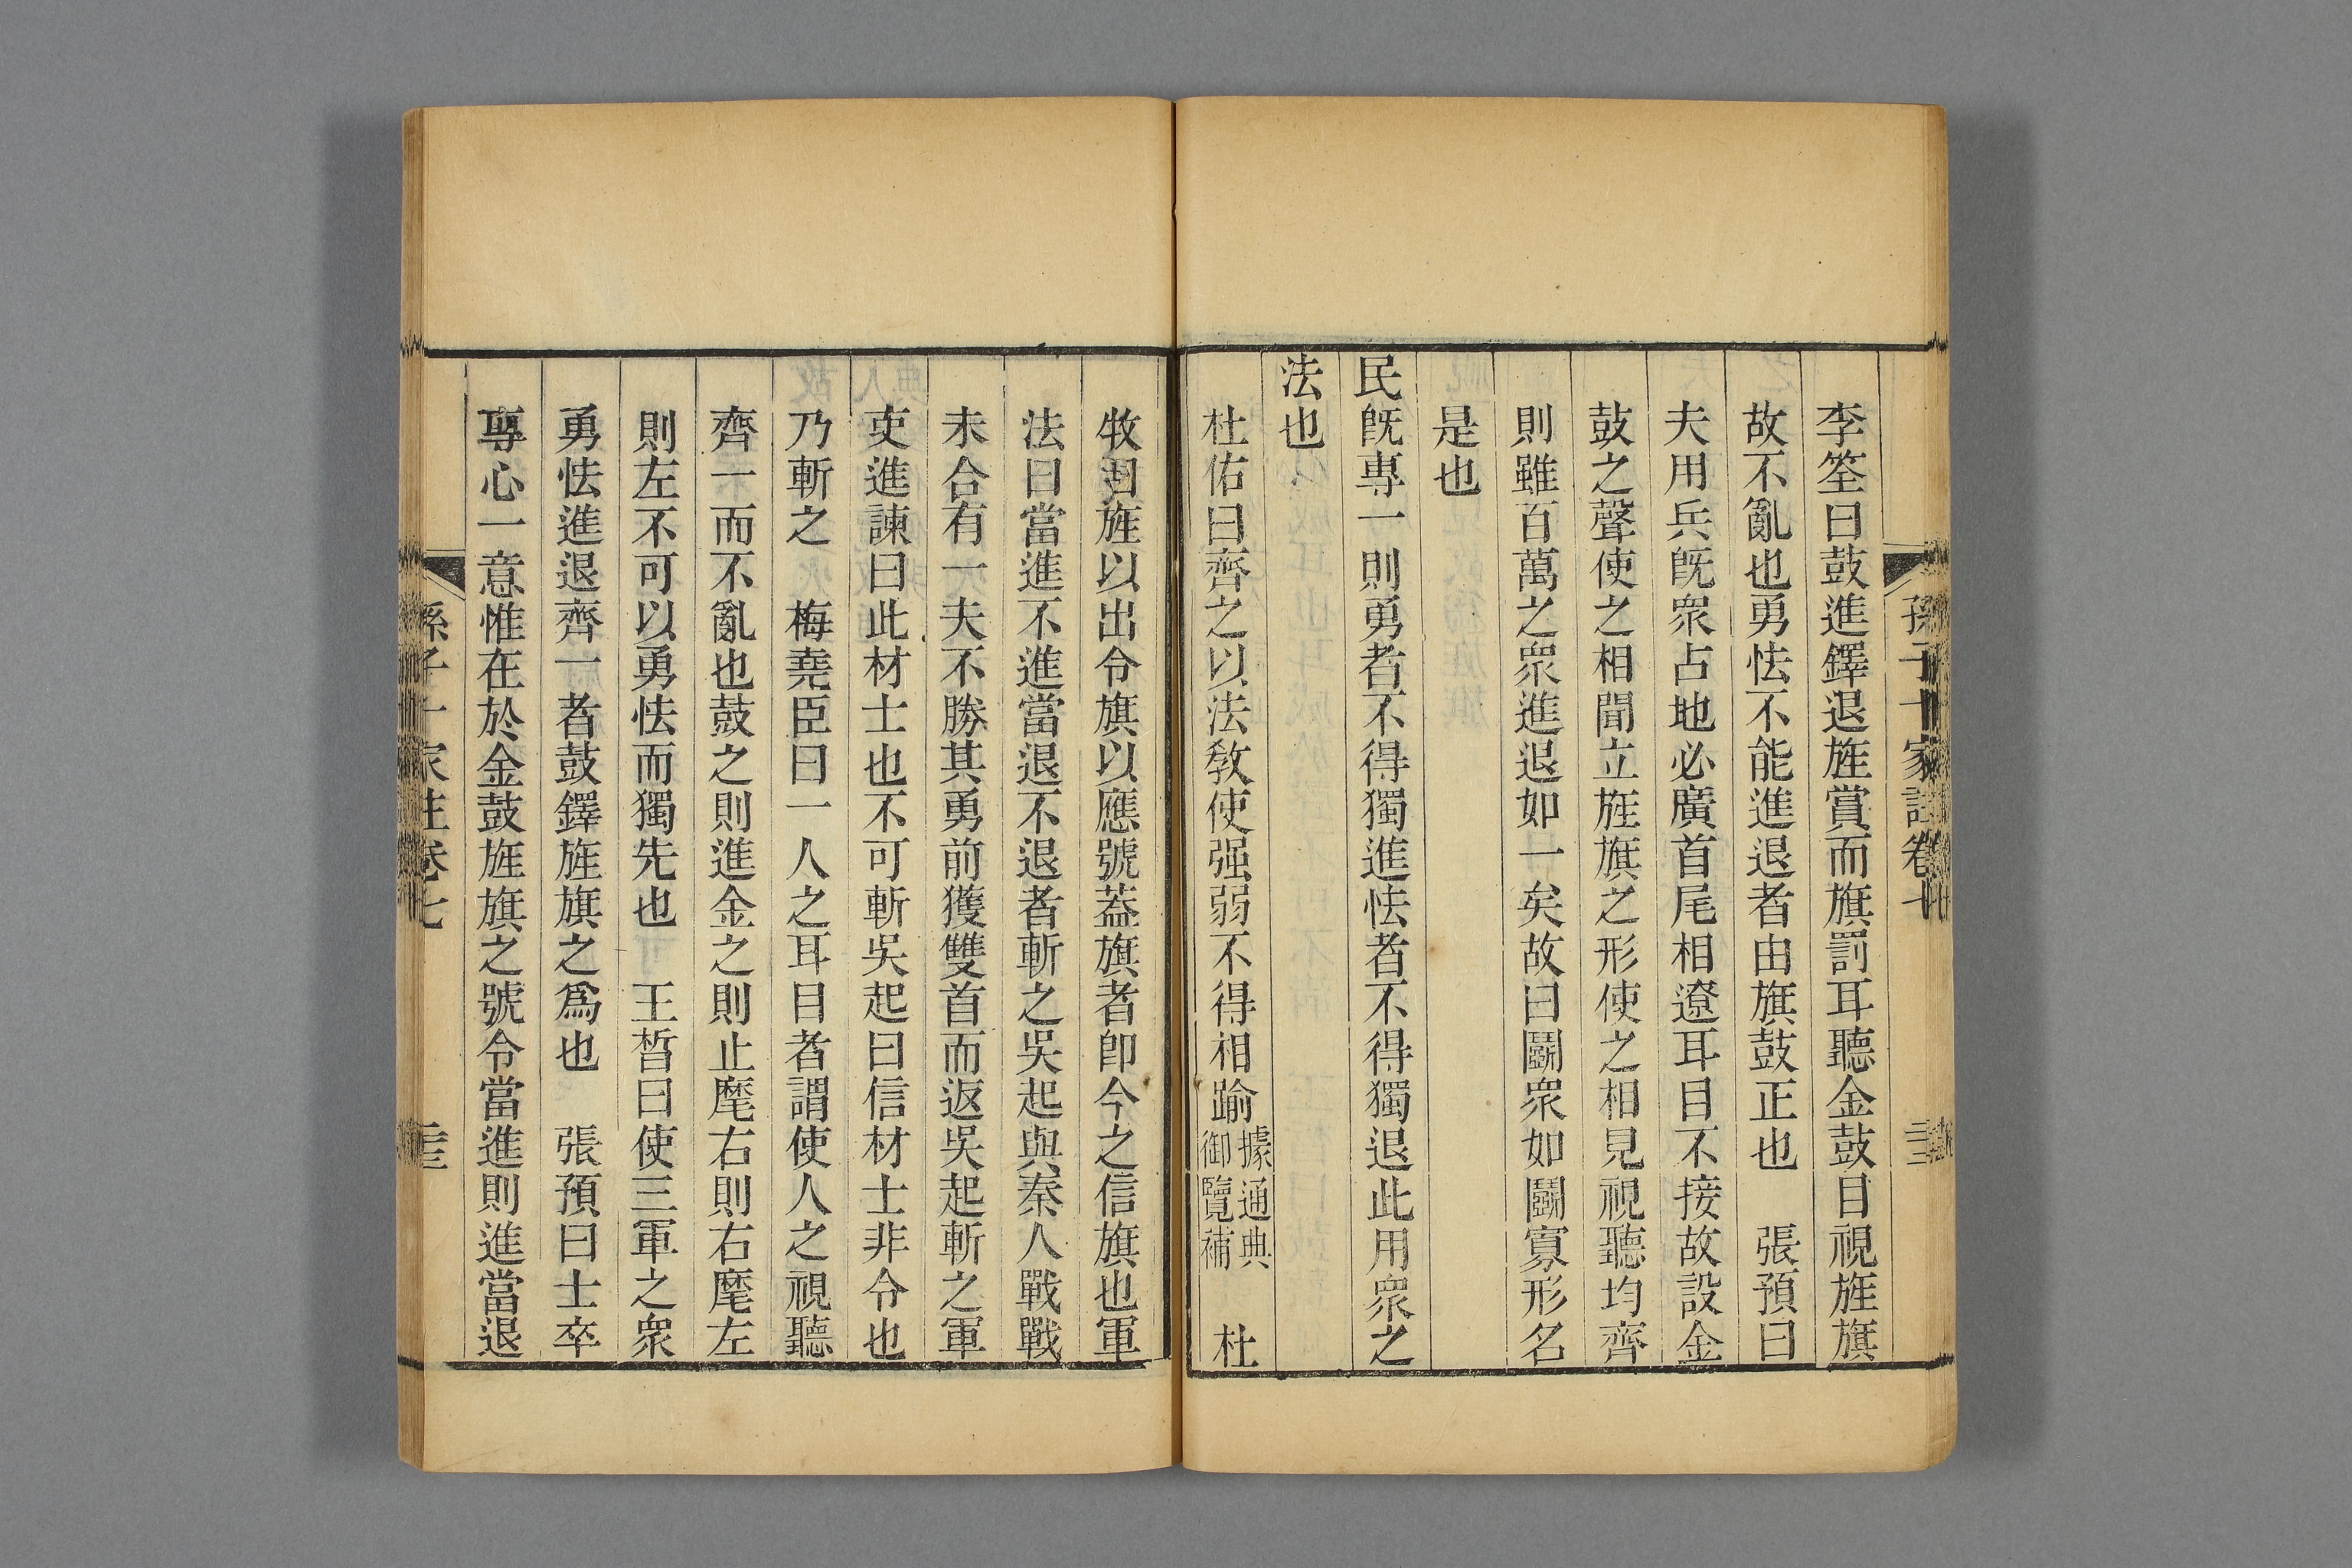 李筌曰鼓進鐸退旌賞而旗罰耳聽金鼓目視旌旗
故不亂也勇怯不能進退者由旗鼓正也　張預曰
夫用兵旣衆占地必廣首尾相遼耳目不接故設金
鼓之聲使之相聞立旌旗之形使之相見視聽均齊
則雖百萬之衆進退如一矣故曰鬬衆如鬬寡形名
是也
民旣專一則勇者不得獨進怯者不得獨退此用衆之
法也
杜佑曰齊之以法敎使强弱不得相踰據通典御覽補　杜
牧曰旌以出令旗以應號蓋旗者卽今之信旗也軍
法曰當進不進當退不退者斬之吳起與秦人戰戰
未合有一夫不勝其勇前獲雙首而返吳起斬之軍
吏進諫曰此材士也不可斬吳起曰信材士非令也
乃斬之　梅堯臣曰一人之耳目者謂使人之視聽
齊一而不亂也鼓之則進金之則止麾右則右麾左
則左不可以勇怯而獨先也　王晳曰使三軍之衆
勇怯進退齊一者鼓鐸旌旗之爲也　張預曰士卒
專心一意惟在於金鼓旌旗之號令當進則進當退
孫子十家註卷七